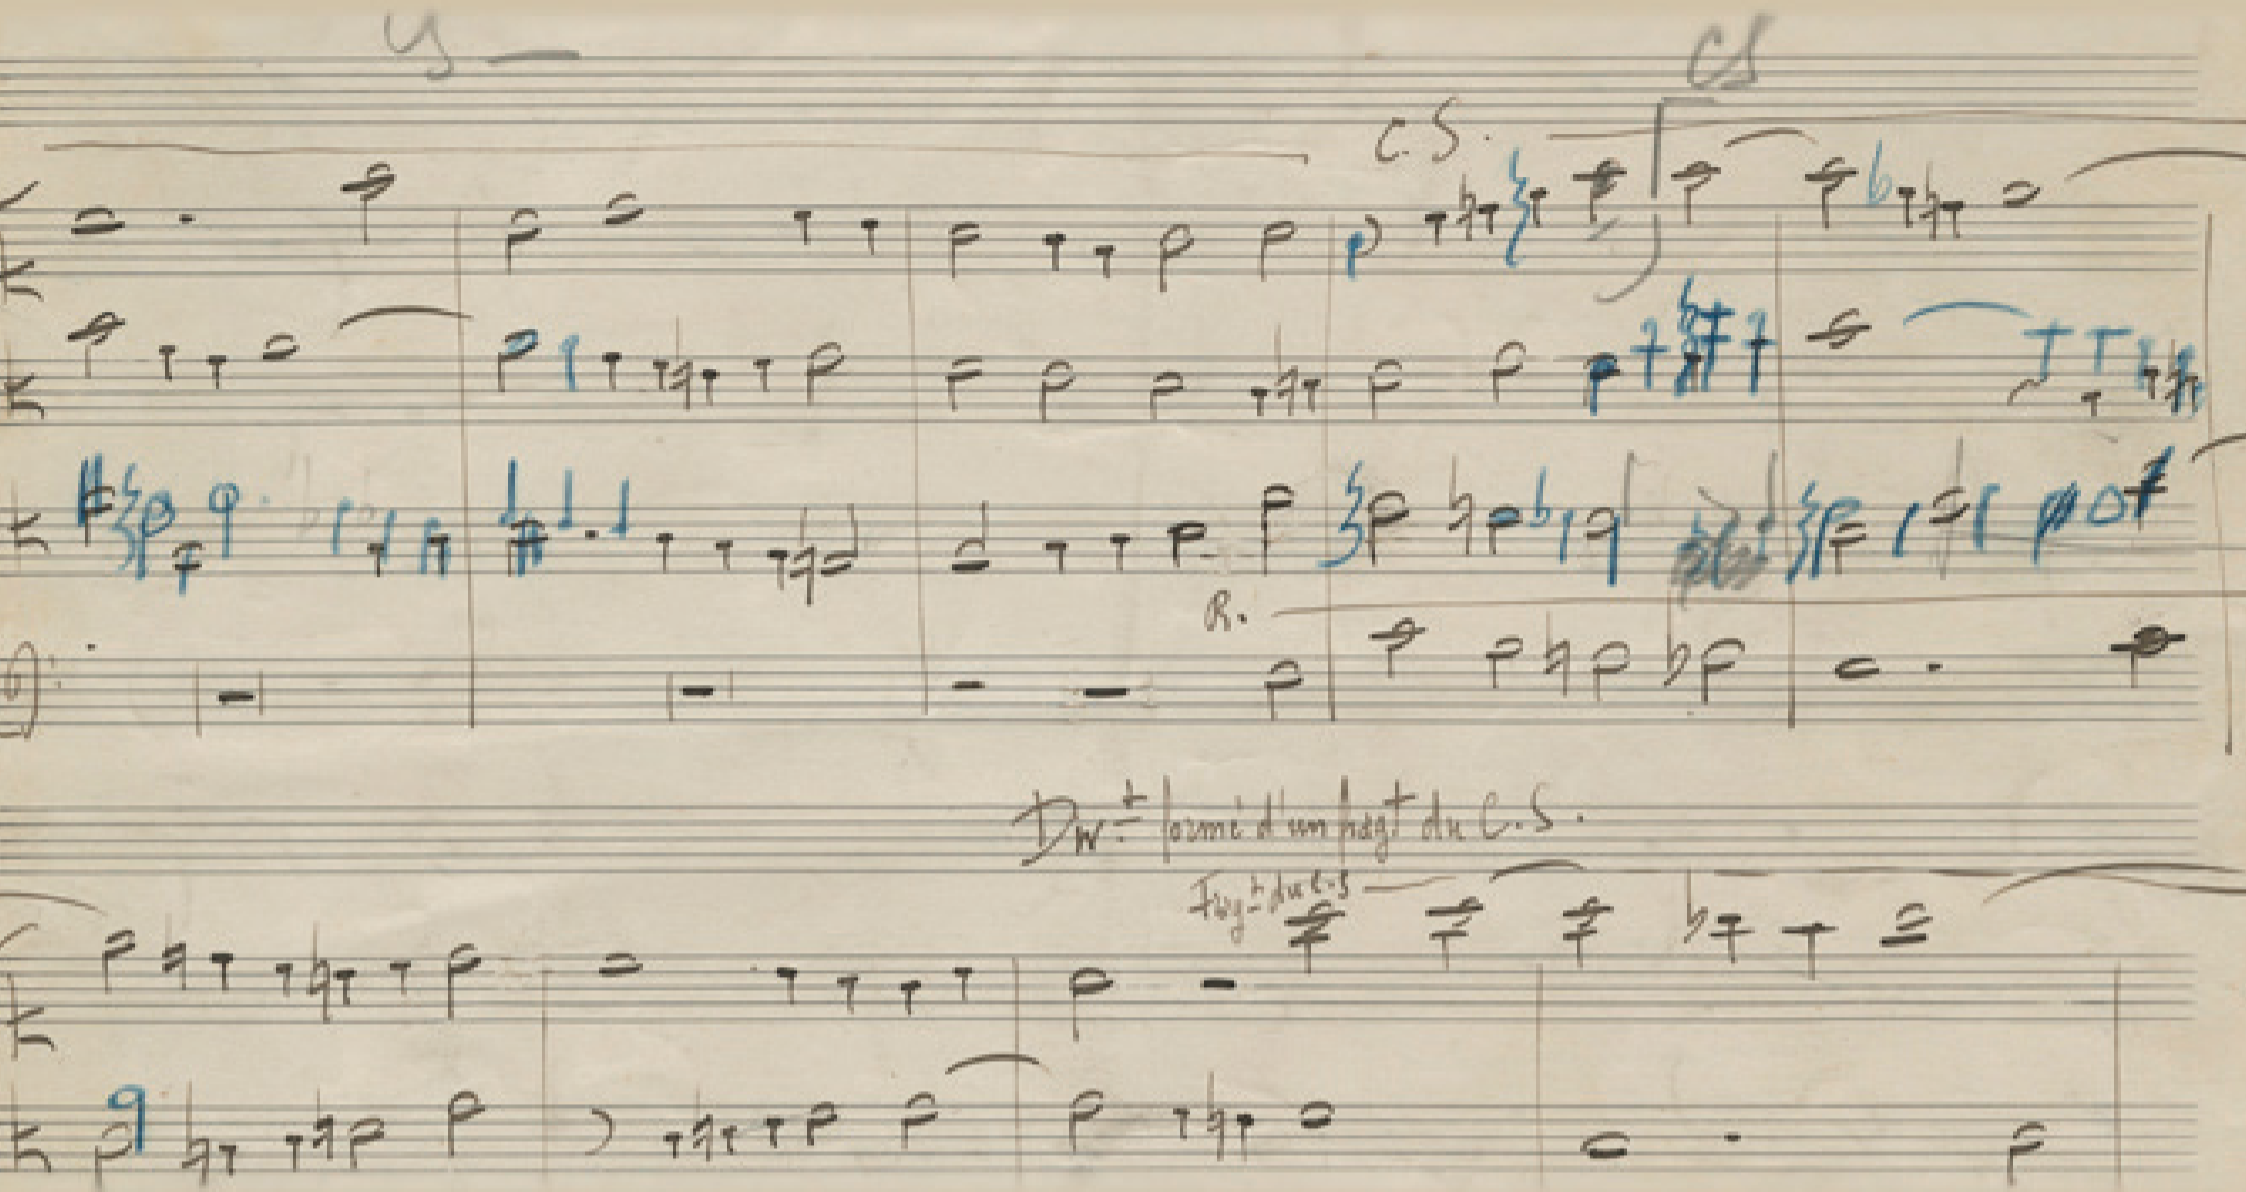 CS
C.S.
R.
Divt formé d'un fragt du C.S.
Fragt du C.S